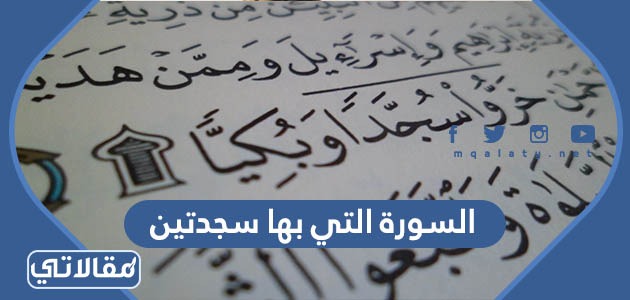 مِن ذُرِّيَّةِ
إِبْرَاهِيمَ وَإِسْرَاءِيلَ وَمِمَّنْ هَدَيْنَا
خَرُّوا سُجَّدًا وَبُكِيًّا
mqalaty.net
السورة التي بها سجدتين
مقالاتي